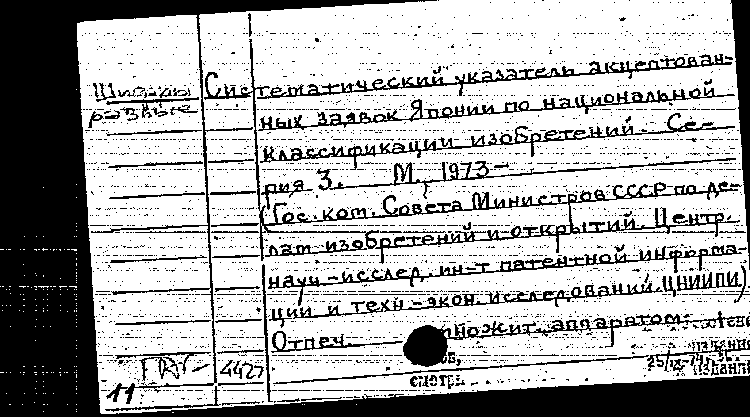 Шифры разные
Систематический указатель акцептован-
ных заявок Японии по национальной
классификации изобретений. Се-
рия 3. М., 1973-
(Гос. ком. Совета Министров СССР по де-
лам изобретений и открытий. Центр.
науч.-исслед. ин-т патентной информа-
ции и техн.-экон. исследований ЦНИИПИ)
Отпеч. множит. аппаратом.
смотри
4427
11